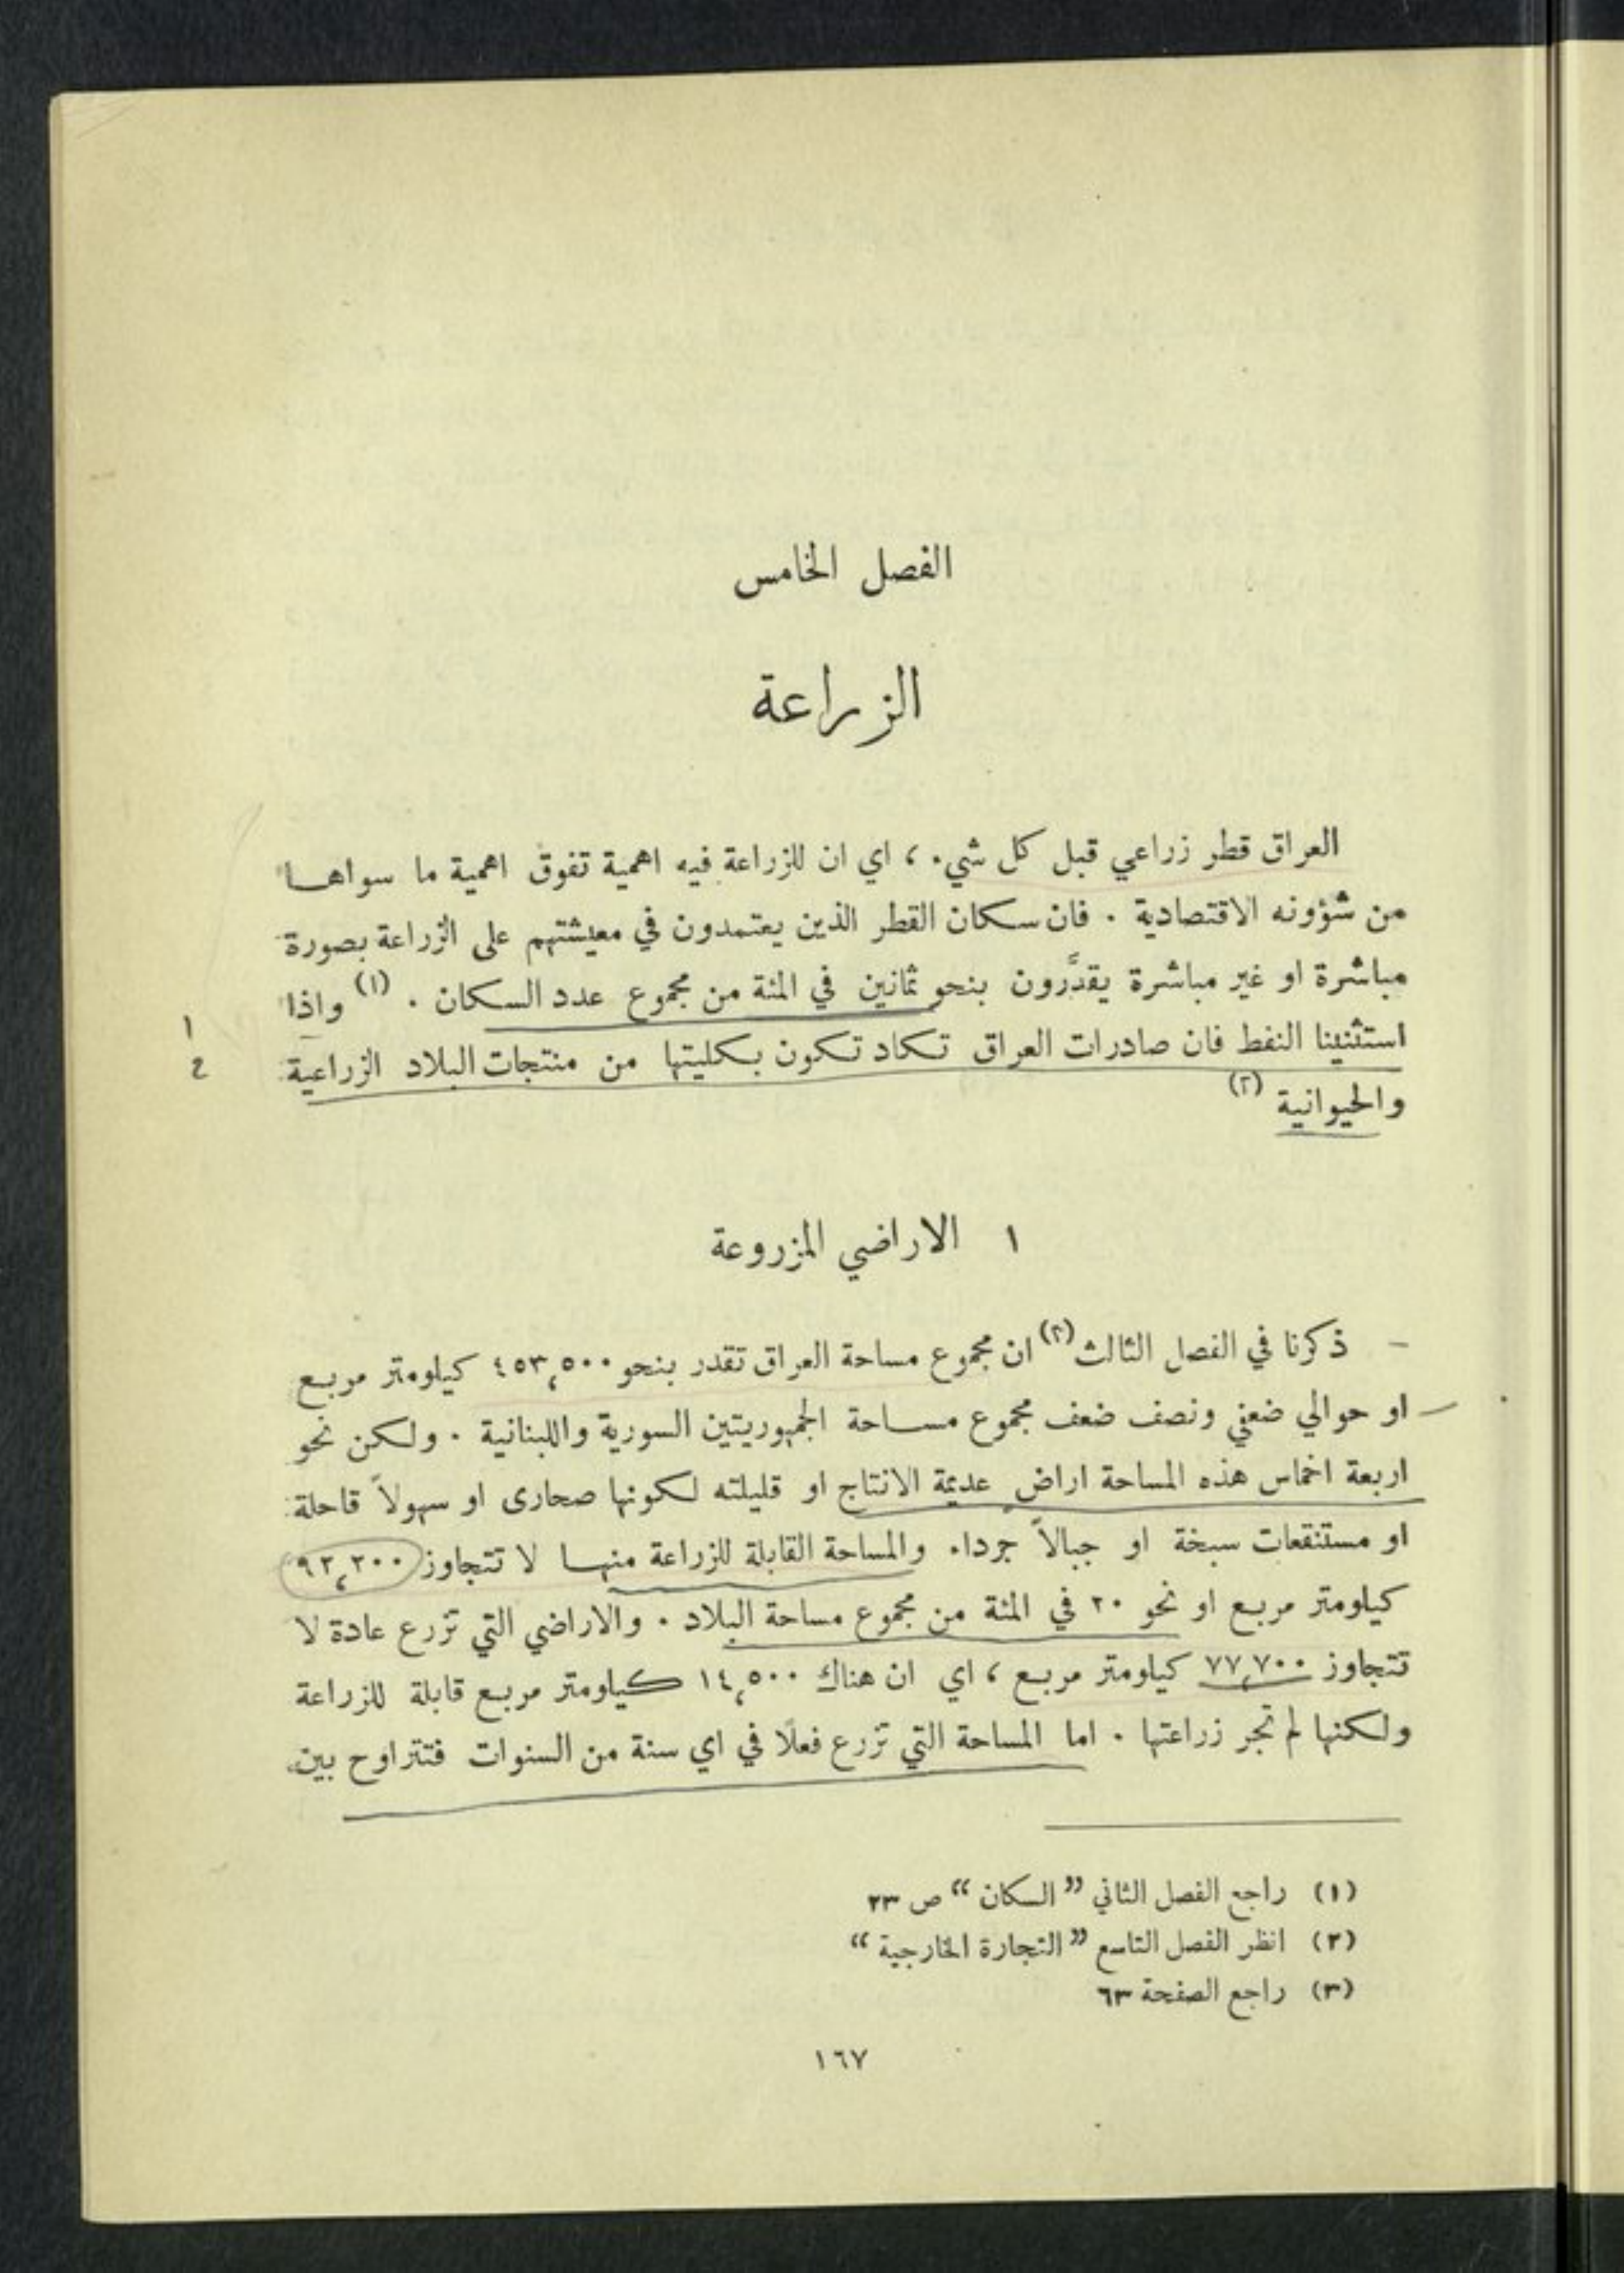 الفصل الخامس
الزراعة
العراق قطر زراعي قبل كل شيء ، اي ان للزراعة فيه اهمية تفوق اهمية ما سواها
من شؤونه الاقتصادية . فان سكان القطر الذين يعتمدون في معيشتهم على الزراعة بصورة
مباشرة او غير مباشرة يقدَّرون بنحو ثمانين في المئة من مجموع عدد السكان . (١) واذا
استثنينا النفط فان صادرات العراق تكاد تكون بكليتها من منتجات البلاد الزراعية
والحيوانية (٢)
١ الاراضي المزروعة
– ذكرنا في الفصل الثالث (٣) ان مجموع مساحة العراق تقدر بنحو ٤٥٣،٥٠٠ كيلومتر مربع
او حوالي ضعفي ونصف ضعف مجموع مساحة الجمهوريتين السورية واللبنانية . ولكن نحو
اربعة اخماس هذه المساحة اراض عديمة الانتاج او قليلته لكونها صحارى او سهولاً قاحلة
او مستنقعات سبخة او جبالاً جرداء والمساحة القابلة للزراعة منها لا تتجاوز ٩٢،٢٠٠
كيلومتر مربع او نحو ٢٠ في المئة من مجموع مساحة البلاد . والاراضي التي تزرع عادة لا
تتجاوز ٧٧،٧٠٠ كيلومتر مربع ، اي ان هناك ١٤،٥٠٠ كيلومتر مربع قابلة للزراعة
ولكنها لم تجر زراعتها . اما المساحة التي تزرع فعلًا في اي سنة من السنوات فتتراوح بين
(١) راجع الفصل الثاني ” السكان “ ص ٢٣
(٢) انظر الفصل التاسع ” التجارة الخارجية “
(٣) راجع الصفحة ٦٣
١٦٧